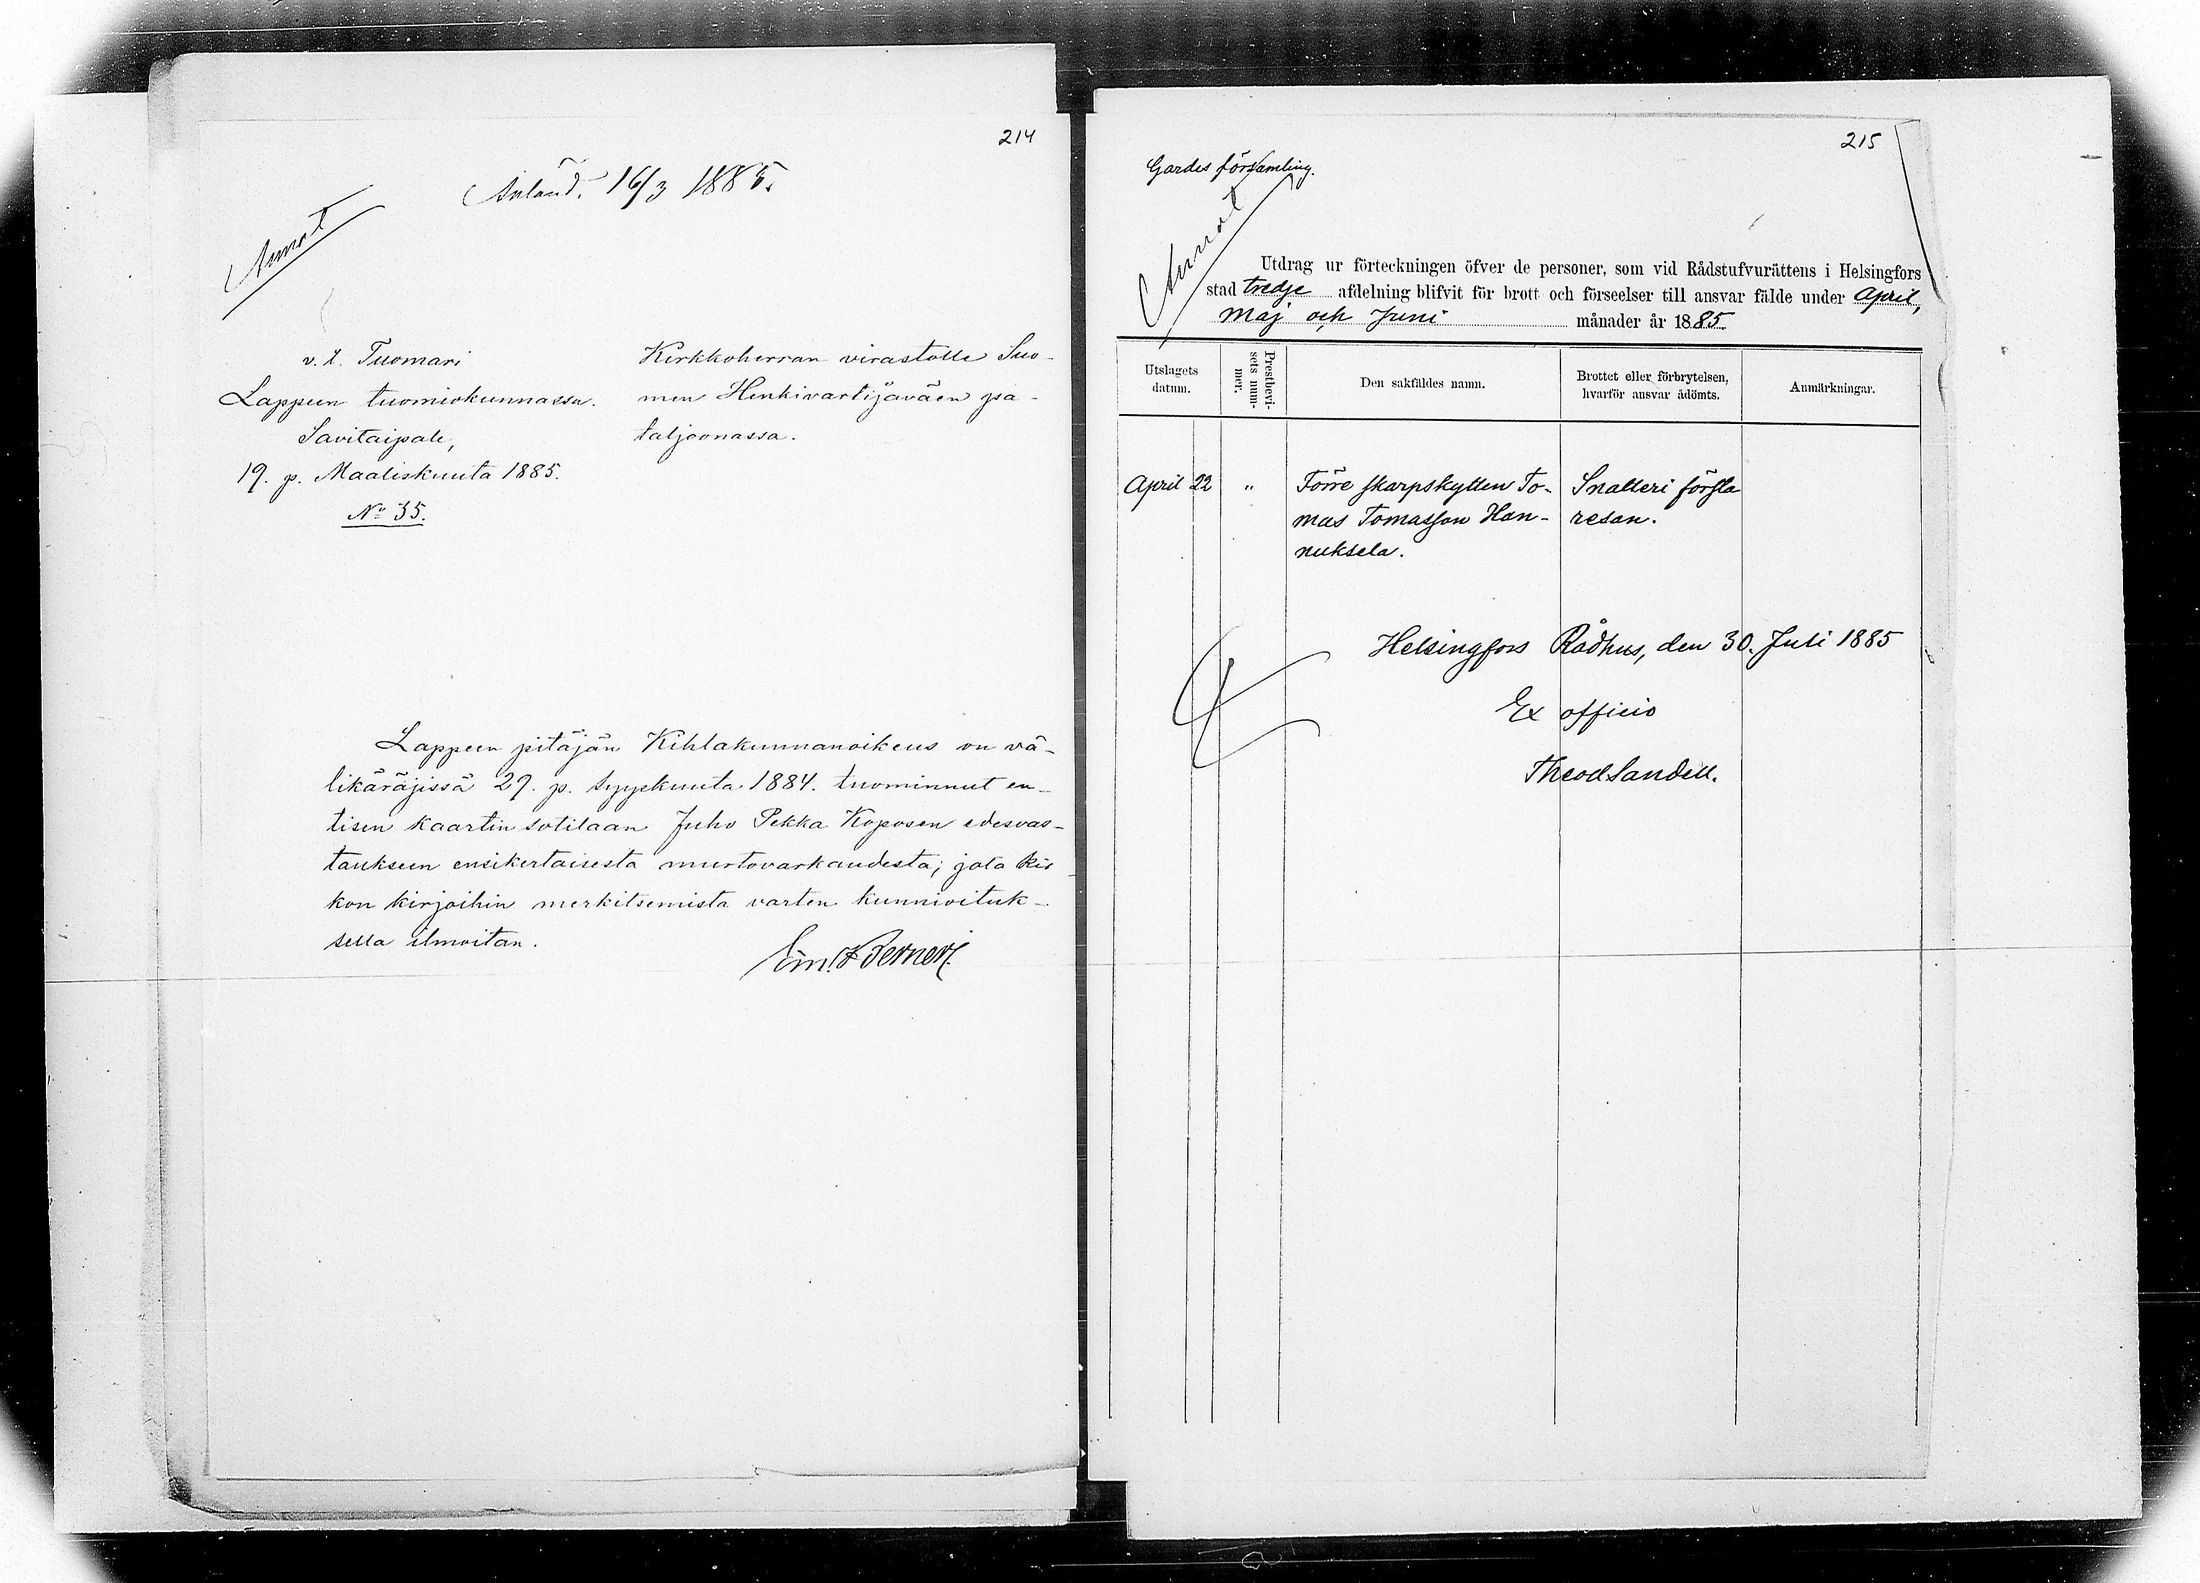 214
Anländ. 16/3 1885.
Annot
v. t. Tuomari
Lappeen tuomiokunnassa.
Savitaipale,
19. p. Maaliskuuta 1885.
No 35.
Kirkkoherran virastolle Suo-
men Henkivartijaväen pa-
taljoonassa.
Lappeen pitäjän Kihlakunnanoikeus on vä-
likäräjissä 29. p. Syyskuuta 1884. tuominnut en-
tisen kaartin sotilaan Juho Pekka Koposen edesvas-
taukseen ensikertaisesta murtovarkaudesta; jota kir
kon kirjoihin merkitsemista varten kunnioituk-
sella ilmoitan.
215
Gardes församling.
Annot
Utdrag ur förteckningen öfver de personer, som vid Rådstufvurättens i Helsingfors
stad tredje afdelning blifvit för brott och förseelser till ansvar fälde under April,
Maj och Juni månader år 1885.
Utslagets datum. Prestbevi-sets num-mer. Den sakfäldes namn. Brottet eller förbrytelsen, hvarför ansvar ådömts. Anmärkningar.
April 22 „ Förre skarpskytten To- Snatteri första
mas Tomasson Han- resan.
nuksela.
Helsingfors Rådhus, den 30. Juli 1885
Ex officio
Theod Sandell.